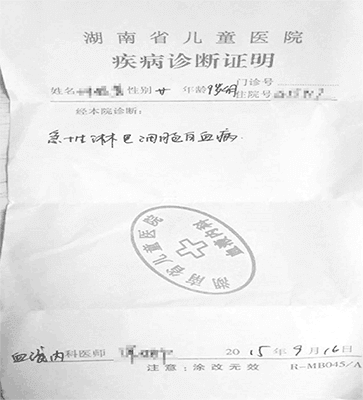 湖南省儿童医院
疾病诊断证明
门诊号
姓名 性别 女 年龄 住院号
经本院诊断：
急性淋巴细胞白血病
湖南省儿童医院
血液内科
血液内科医师 2015年9月16日
注意：涂改无效 R-MB045/A